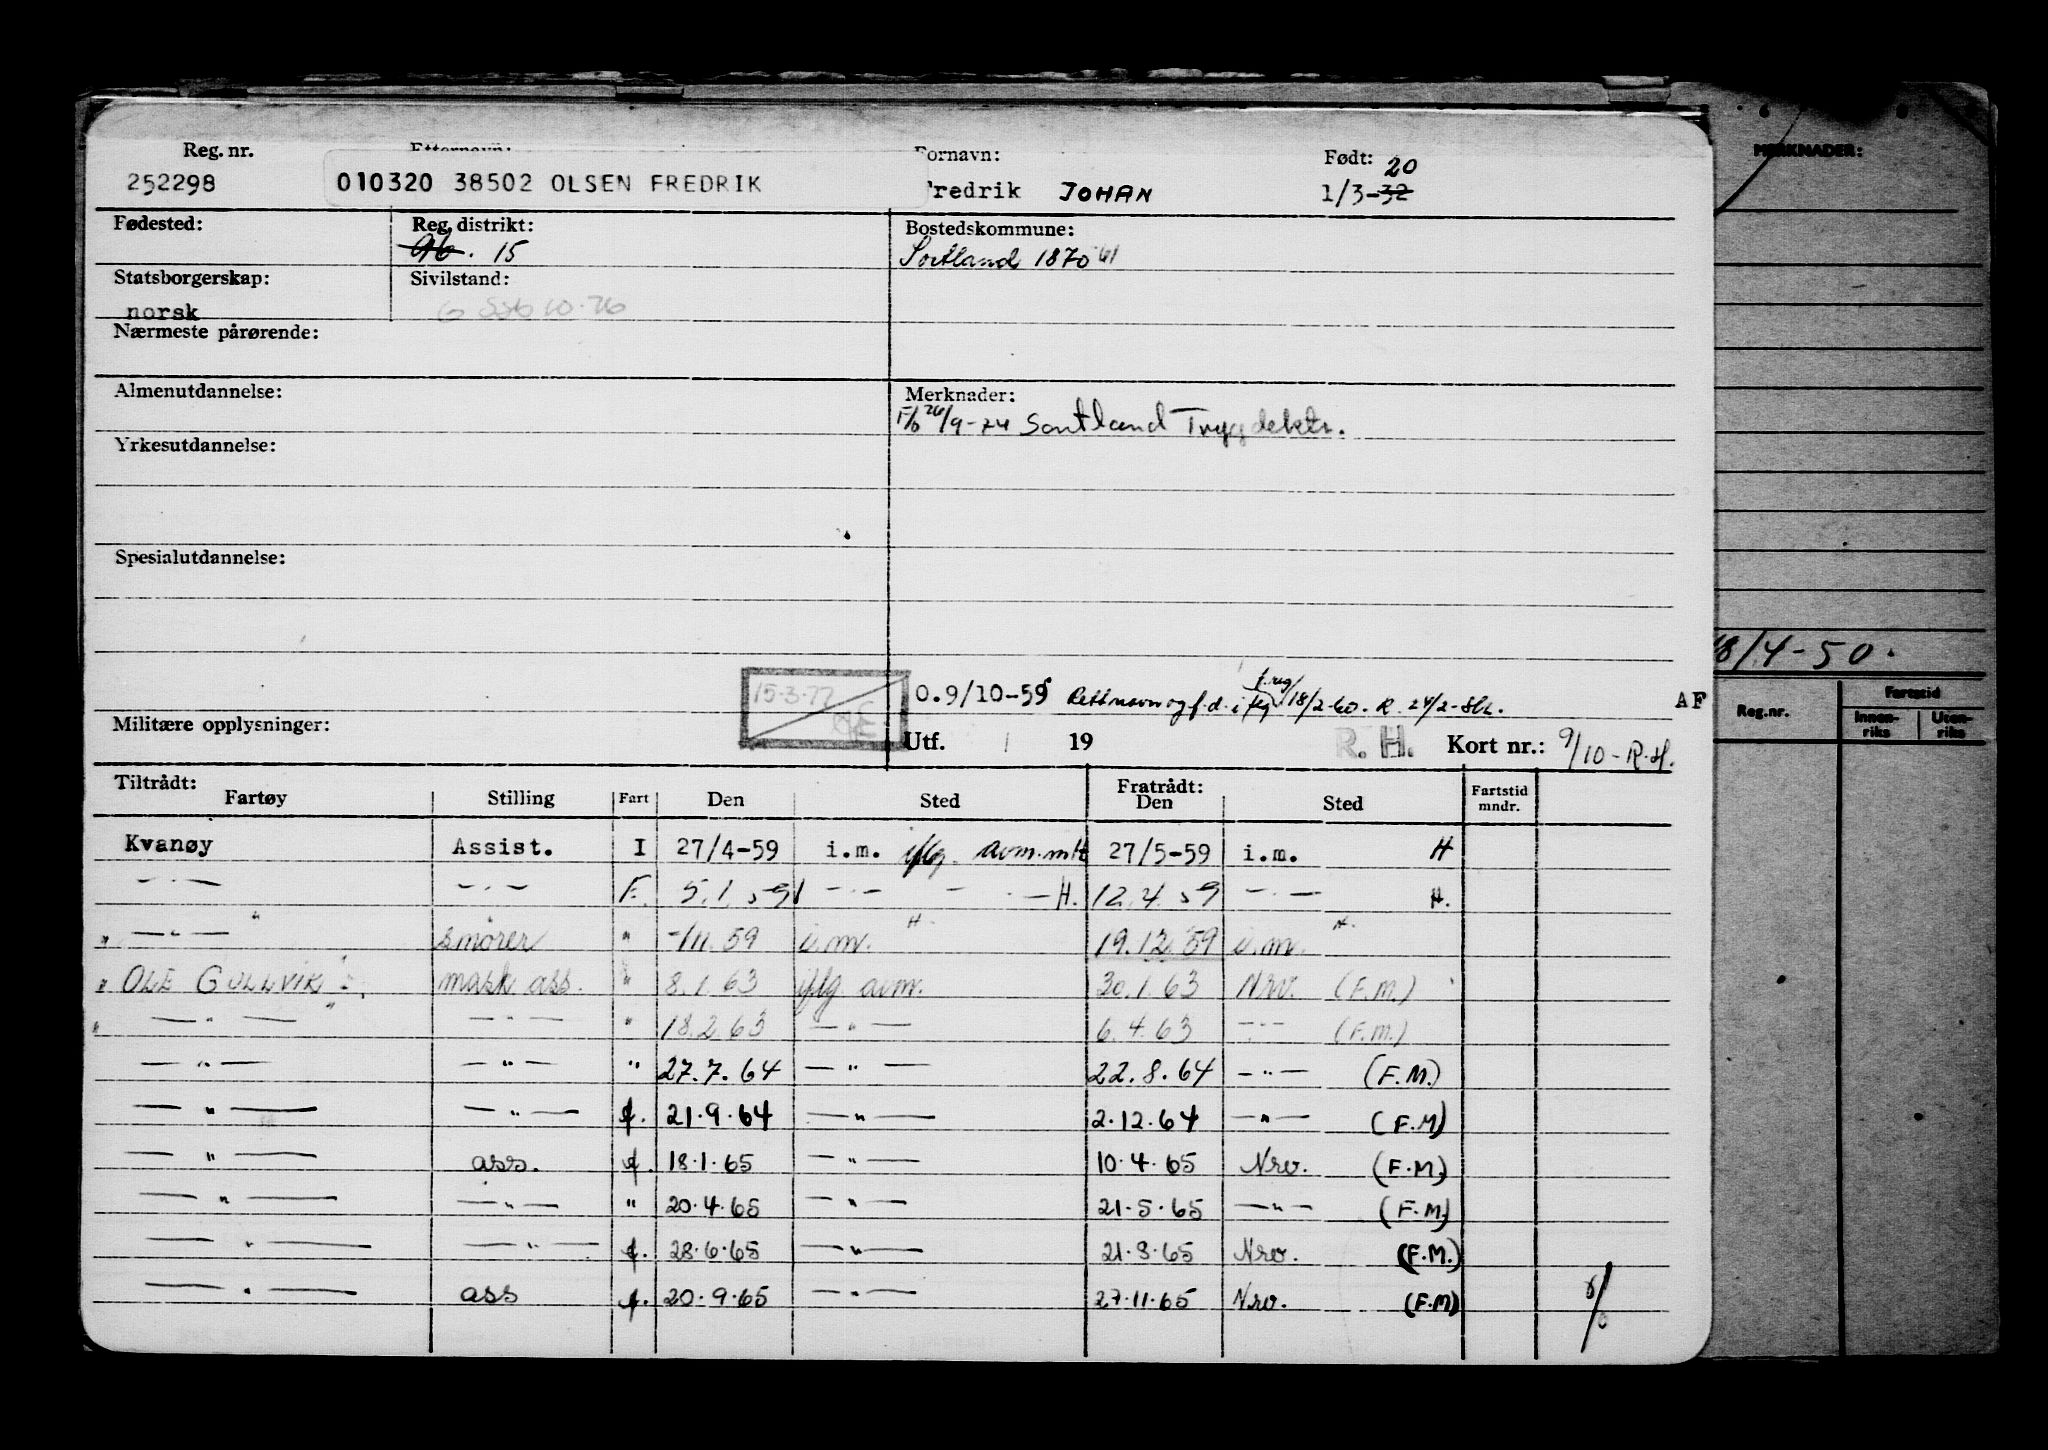 Reg. nr. Fornavn: Født: 20
252298 010320 38502 OLSEN FREDRIK redrik JOHAN 1/3-32
Fødested: Reg. distrikt: Bostedskommune:
15 Sortland 1870 61
Statsborgerskap: Sivilstand:
norsk
Nærmeste pårørende:
Almenutdannelse: Merknader:
F/b 26/9-74 Sortland Trygdektr.
Yrkesutdannelse:
Spesialutdannelse:
15.3.77
O.9/10-59 18/2-60. R. 24/2- AF
Militære opplysninger: Utf. 19 R. H. Kort nr.: 9/10-R.H.
Tiltrådt: Fratrådt:
Fartøy Stilling Fart Den Sted Den Sted Fartstid mndr.
Kvanøy Assist. I 27/4-59 i.m. iflg. avm.mlt 27/5-59 i.m. H
—"— —"— F. 5.1.59 —"— — " — H. 12.4.59 —"— H.
" —"— smører " -/11.59 i.m. H. 19.12.59 i.m. H.
" OLE GULLVIK mask ass. " 8.1.63 iflg. avm. 30.1.63 Nrv. (F.M.)
" —"— —"— " 18.2.63 —"— 6.4.63 —"— (F.M.)
—"— —"— " 27.7.64 —"— 22.8.64 —"— (F.M.)
—"— —"— f. 21.9.64 —"— 2.12.64 —"— (F.M)
—"— ass. f. 18.1.65 —"— 10.4.65 Nrv. (F.M)
—"— —"— " 20.4.65 —"— 21.5.65 —"— (F.M)
—"— —"— f. 28.6.65 —"— 21.8.65 Nrv. (F.M.)
—"— ass f. 20.9.65 —"— 27.11.65 Nrv. (F.M)
MERKNADER:
18/4-50.
Reg.nr. Fartstid
Innen-riks Uten-riks